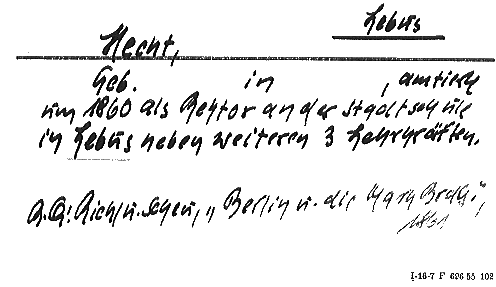 Lebus
Hecht,
Geb. in , amtiert
um 1860 als Rektor an der Stadtschule
in Lebus neben weiteren 3 Lehrkräften.
u. „Berlin u. die Mark Brdbg.",
I-16-7 F 626 55 102